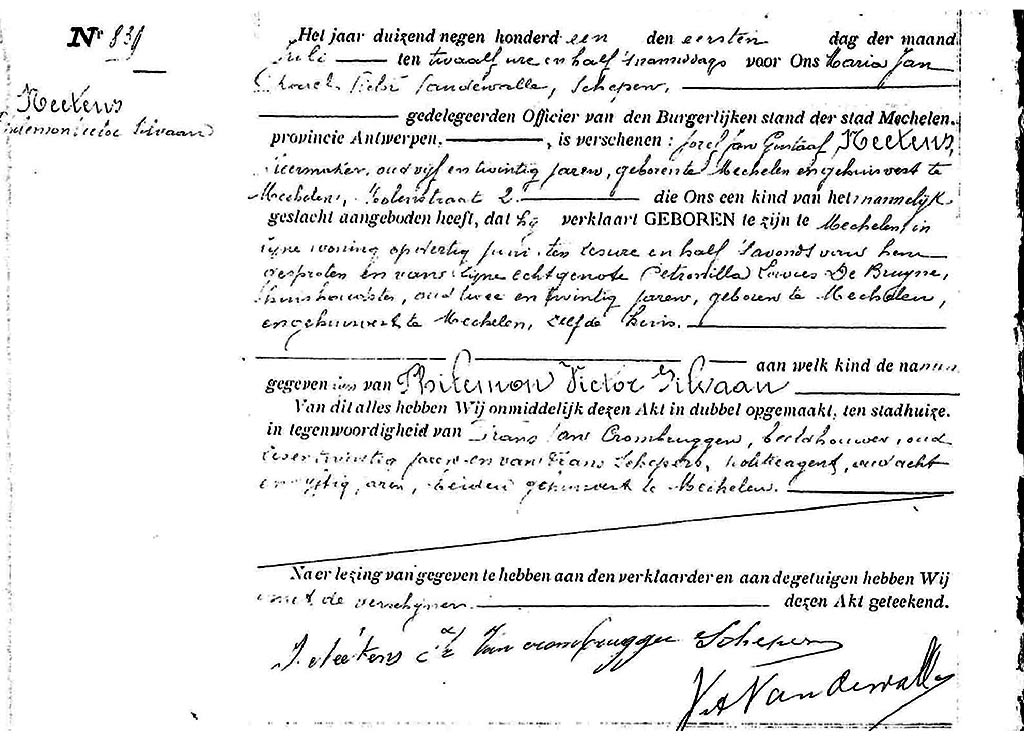 Nr 839
Neetens
Philemon Victor Silvaan
Het jaar duizend negen honderd een den eersten dag der maand
Juli ten twaalf ure en half 's namiddags voor Ons Maria Jan
Vandewalle, Schepen,
gedelegeerden Officier van den Burgerlijken stand der stad Mechelen.
provincie Antwerpen, , is verschenen : Jozef Jan Gustaaf Neetens,
oud vijf en twintig jaren, geboren te Mechelen en gehuisvest te
Mechelen, 2. die Ons een kind van het mannelijk
geslacht aangeboden heeft, dat hij verklaart GEBOREN te zijn te Mechelen, in
zijne woning op dertig juni, ten ure en half 's avonds van hem
gesproten en van zijne echtgenote Petronilla Louies De Bruyne,
huishoudster, oud twee en twintig jaren, geboren te Mechelen,
en gehuisvest te Mechelen, zelfde huis.
aan welk kind de namen
gegeven van Philemon Victor Silvaan
Van dit alles hebben Wij onmiddelijk dezen Akt in dubbel opgemaakt, ten stadhuize.
in tegenwoordigheid van Frans Van Crombruggen, beeldhouwer, oud
twintig jaren en van Frans Schepers, politieagent, oud acht
en vijftig jaren, beiden gehuisvest te Mechelen.
Na er lezing van gegeven te hebben aan den verklaarder en aan de getuigen hebben Wij
met de verschijnen. dezen Akt geteekend.
J Neetens Van Crombrugge Schepers
Vandewalle